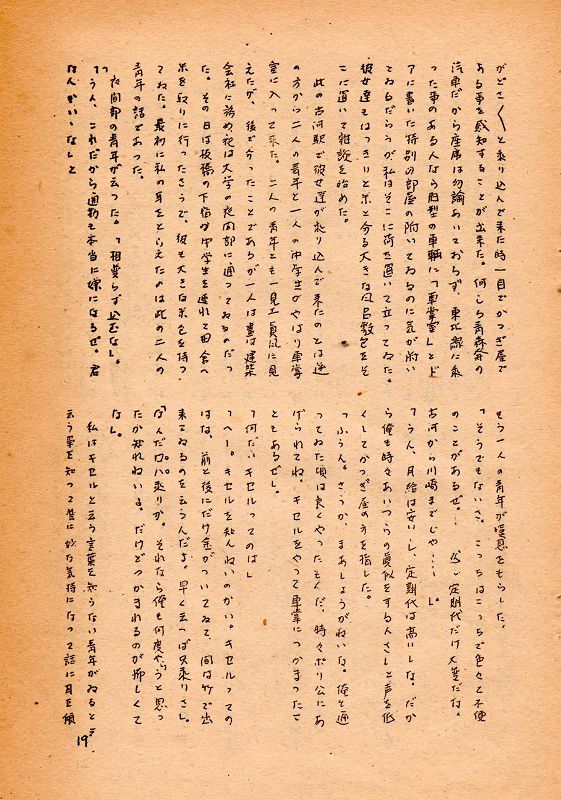 がどさ〳〵と乗り込んで来た時一目でかつぎ屋で
ある事を感知することが出来た。何しろ青森発の
汽車だから座席は勿論あいておらず、東北線に乗
った事のある人なら旧型の車輌に「車掌室」とド
アに書いた特別の部屋の附いてゐるのに気が附い
てゐるだらうが私はそこに荷を置いて立ってゐた。
彼女達もはっきりと米と分る大きな風呂敷包をそ
こに置いて雑談を始めた。
此の古河駅で彼女達が乗り込んで来たのとは逆
の方から二人の青年と一人の中学生がやはり車掌
室に入って来た。二人の青年とも一見工員風に見
えたが、後で分ったことであるが一人は昼は建築
会社に務め夜は大学の夜間部に通ってゐるのだっ
た。その日は板橋の下宿が中学生を連れて田舎へ
米を取りに行ったさうで、彼も大きな米包を持っ
てゐた。最初に私の耳をとらえたのは此の二人の
青年の話であった。
夜間部の青年が云った。「相変らず込むなし。
「うん、これだから通勤も本当に嫌になるぜ。君
なんかいいなし」と
もう一人の青年が慢息をもらした。
「そうでもないさ。こっちはこっちで色々と不便
のことがあるぜ。定期代だけ大変だな。
古河から川崎までじゃ……」。
「うん、月給は安いし、定期代は高いしな。だか
ら俺も時々あいつらの真似をする人さ」と声を低
くしてかつぎ屋の方を指した。
「ふうん。さうか、まあしょうがねいな。俺も通
ってゐた頃は良くやったもんだ、時々ポリ公にあ
げられてね。キセルをやって車掌につかまったこ
ともあるぜ」。
「何だいキセルってのは」
「へー。キセルを知んねいのかい。キセルっての
はな、前と後にだけ金がついてゐて、間は竹で出
来てゐるのを云うんだよ。早く云へば只乗りさ」。
「なんだロハ乗りか。それなら俺も何度やらうと思っ
たか知れねいよ。だけどつかまれるのが怖しくて
な」。
私はキセルと云う言葉を知らない青年がゐると云
う事を知って甚に妙な気持になって話に耳を傾
19